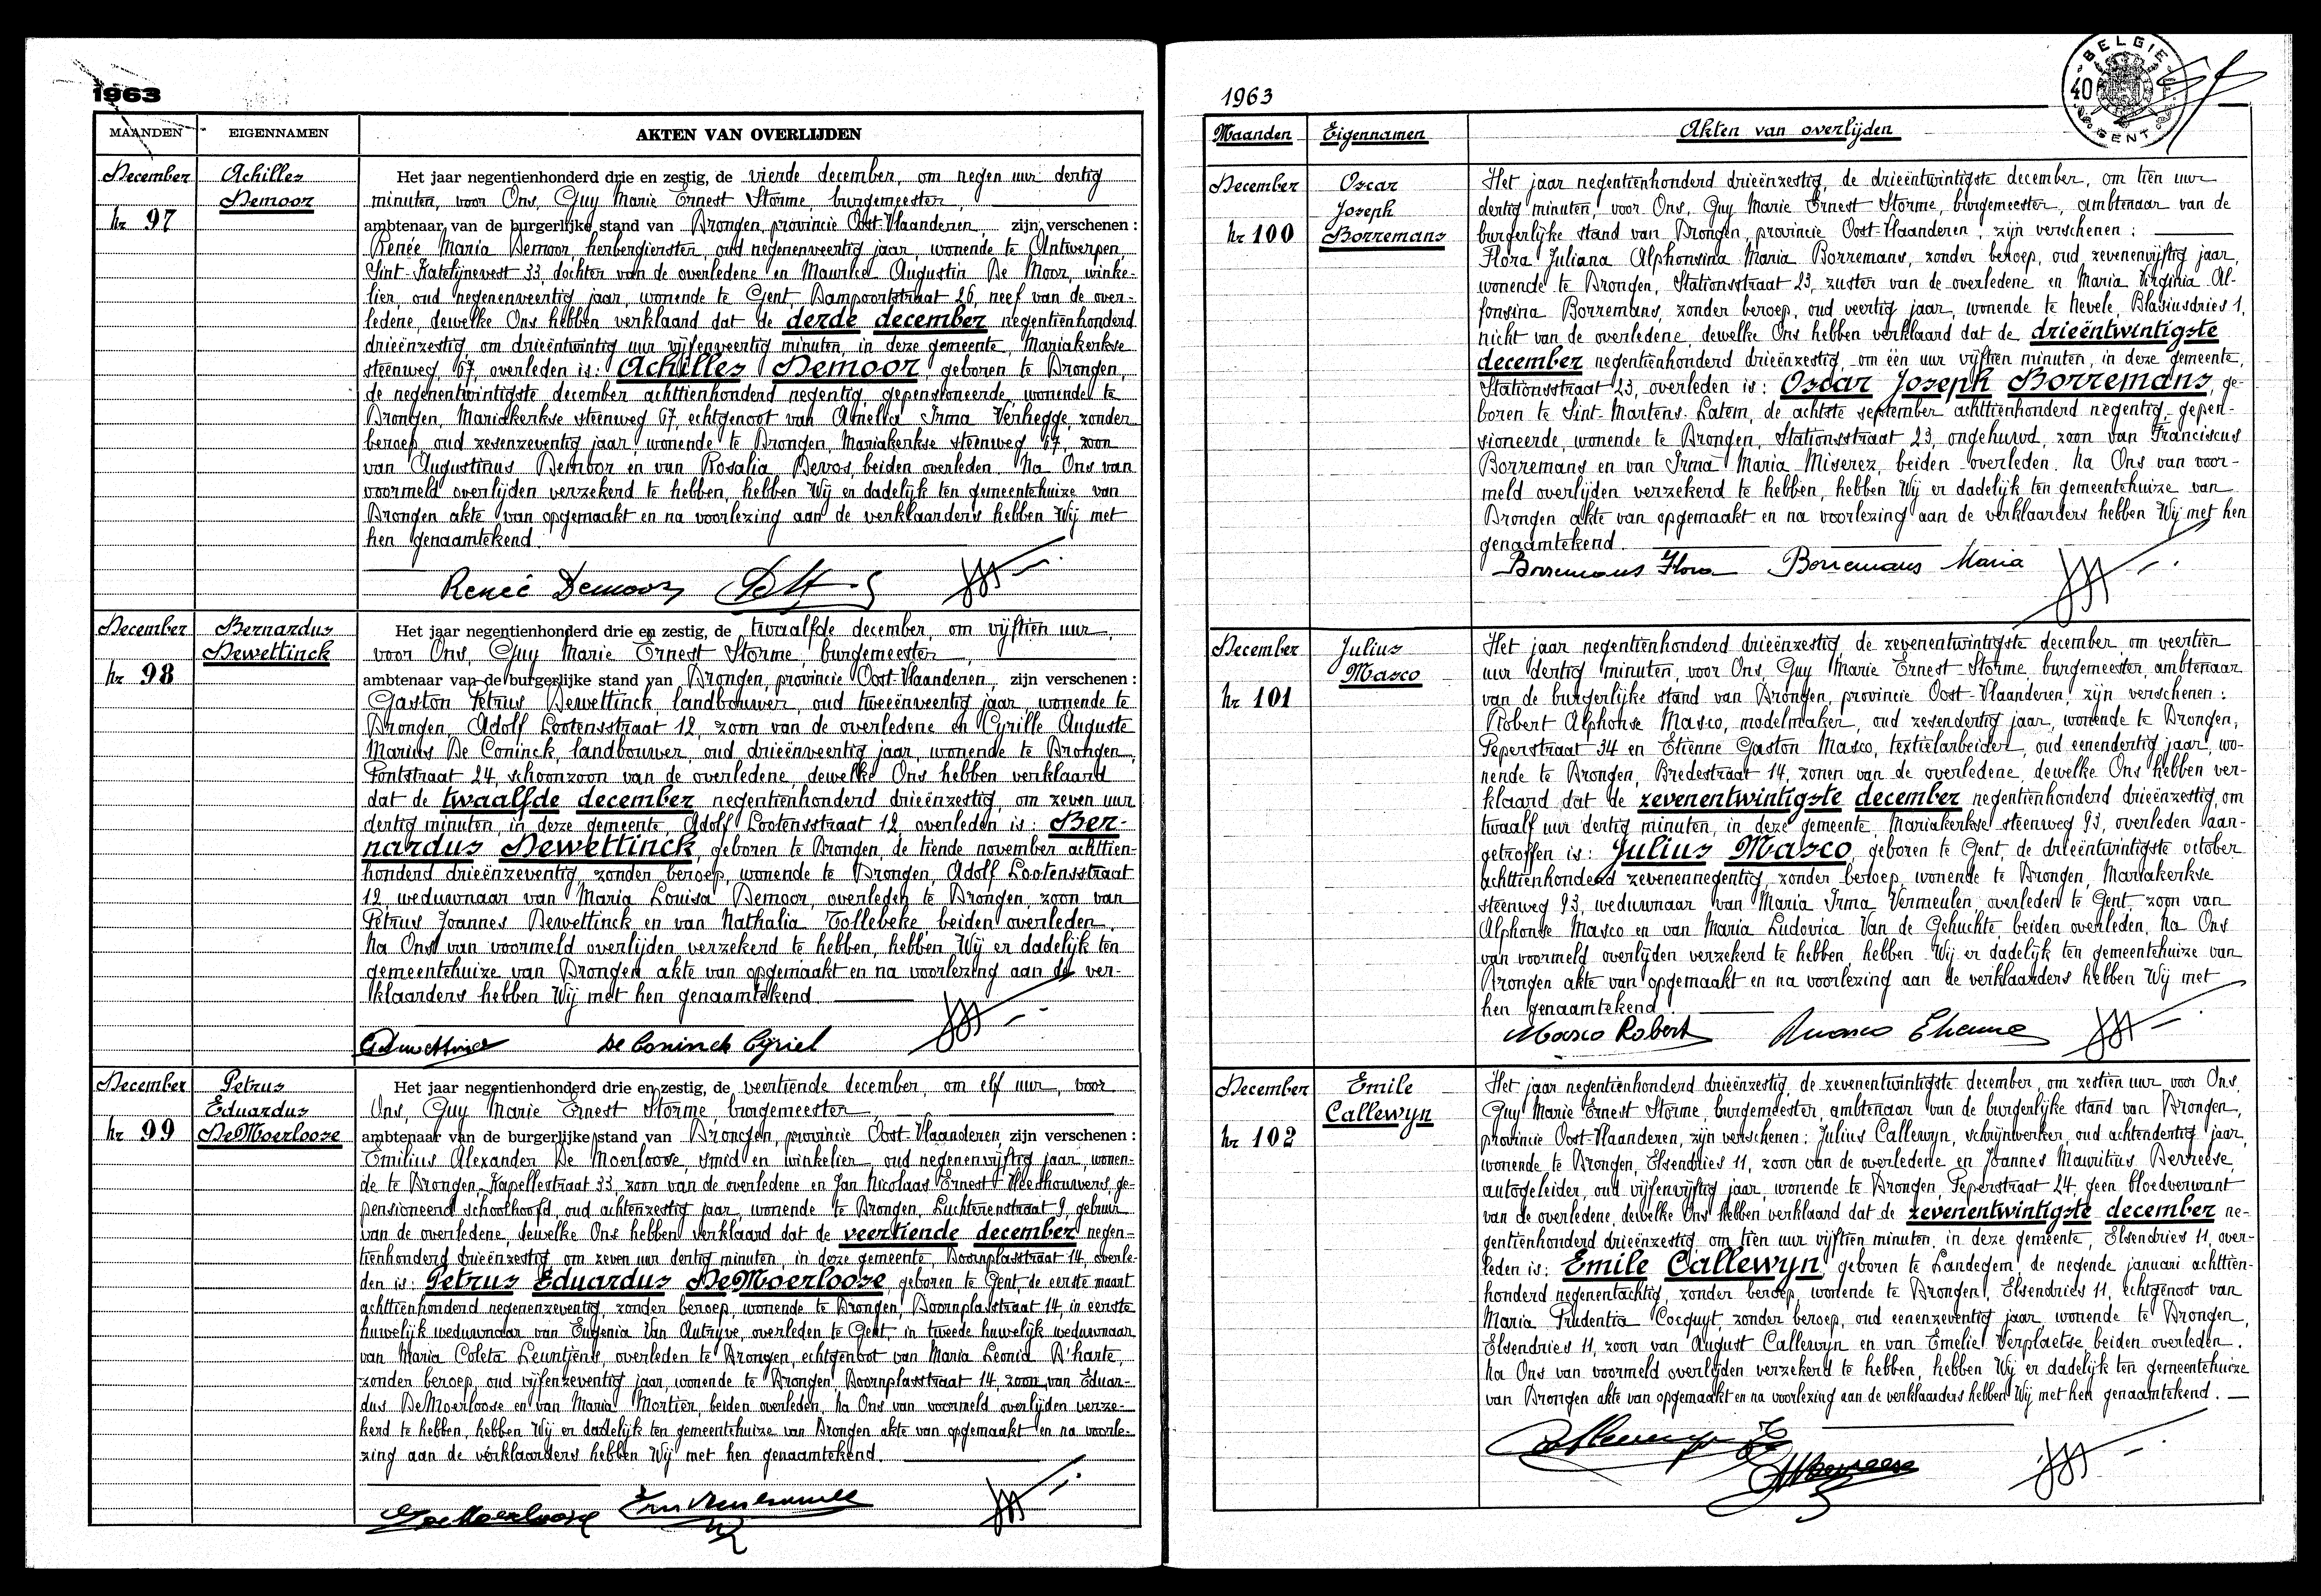 1963
MAANDEN EIGENNAMEN AKTEN VAN OVERLIJDEN
December
nr 97
Achilles
Demoor
Het jaar negentienhonderd drie en zestig, de vierde december, om negen uur dertig
minuten, voor Ons, Guy Marie Ernest Storme, burgemeester,
ambtenaar van de burgerlijke stand van Drongen, provincie Oost-Vlaanderen, zijn verschenen :
Renée Maria Demoor, herbergierster, oud negenenveertig jaar, wonende te Antwerpen,
Sint-Katelijnevest 33, dochter van de overledene en Maurice Augustin De Moor, winke-
lier, oud negenenveertig jaar, wonende te Gent, Dampoortstraat 26, neef van de over-
ledene, dewelke Ons hebben verklaard dat de derde december negentienhonderd
drieënzestig, om drieëntwintig uur vijfenveertig minuten, in deze gemeente, Mariakerkse
steenweg 67, overleden is: Achilles Demoor, geboren te Drongen,
de negenentwintigste december achttienhonderd negentig, gepensioneerde, wonende te
Drongen, Mariakerkse steenweg 67, echtgenoot van Amelia Irma Verhegge, zonder
beroep, oud zevenzeventig jaar, wonende te Drongen, Mariakerkse steenweg 67, zoon
van Augustinus Demoor en van Rosalia Devos, beiden overleden. Na Ons van
voormeld overlijden verzekerd te hebben, hebben Wij er dadelijk ten gemeentehuize van
Drongen akte van opgemaakt en na voorlezing aan de verklaarders hebben Wij met
hen genaamtekend.
Renée Demoor
December
nr 98
Bernardus
Dewettinck
Het jaar negentienhonderd drie en zestig, de twaalfde december, om vijftien uur,
voor Ons, Guy Marie Ernest Storme, burgemeester,
ambtenaar van de burgerlijke stand van Drongen, provincie Oost-Vlaanderen, zijn verschenen :
Gaston Petrus Dewettinck, landbouwer, oud tweeënveertig jaar, wonende te
Drongen, Adolf Lootensstraat 12, zoon van de overledene en Cyrille Auguste
Marius De Coninck, landbouwer, oud drieënveertig jaar, wonende te Drongen,
Pontstraat 24, schoonzoon van de overledene, dewelke Ons hebben verklaard
dat de twaalfde december negentienhonderd drieënzestig, om zeven uur
dertig minuten, in deze gemeente, Adolf Lootensstraat 12, overleden is: Ber-
nardus Dewettinck, geboren te Drongen, de tiende november achttien-
honderd drieënzeventig, zonder beroep, wonende te Drongen, Adolf Lootensstraat
12, weduwnaar van Maria Louisa Demoor, overleden te Drongen, zoon van
Petrus Joannes Dewettinck en van Nathalia Tollebeke, beiden overleden.
Na Ons van voormeld overlijden verzekerd te hebben, hebben Wij er dadelijk ten
gemeentehuize van Drongen akte van opgemaakt en na voorlezing aan de ver-
klaarders hebben Wij met hen genaamtekend.
De Coninck Cyriel
December
nr 99
Petrus
Eduardus
DeMoerloose
Het jaar negentienhonderd drie en zestig, de veertiende december, om elf uur, voor
Ons, Guy Marie Ernest Storme, burgemeester,
ambtenaar van de burgerlijke stand van Drongen, provincie Oost-Vlaanderen, zijn verschenen :
Emilius Alexander De Moerloose, smid en winkelier, oud negenenvijftig jaar, wonen-
de te Drongen, Kapellestraat 33, zoon van de overledene en Jan Nicolaas Ernest Vleeshouwers, ge-
pensioneerd schoolhoofd, oud achtenzestig jaar, wonende te Drongen, Luchterenstraat 9, gebuur
van de overledene, dewelke Ons hebben verklaard dat de veertiende december negen-
tienhonderd drieënzestig, om zeven uur dertig minuten, in deze gemeente, Doornplasstraat 14, overle-
den is: Petrus Eduardus DeMoerloose, geboren te Gent, de eerste maart
achttienhonderd negenenzeventig, zonder beroep, wonende te Drongen, Doornplasstraat 14, in eerste
huwelijk weduwnaar van Eugenia Van Autryve, overleden te Gent, in tweede huwelijk weduwnaar
van Maria Coleta Leuntjens, overleden te Drongen, echtgenoot van Maria Leonia D'harte,
zonder beroep, oud vijfenzeventig jaar, wonende te Drongen, Doornplasstraat 14, zoon van Eduar-
dus DeMoerloose en van Maria Mortier, beiden overleden. Na Ons van voormeld overlijden verze-
kerd te hebben, hebben Wij er dadelijk ten gemeentehuize van Drongen akte van opgemaakt en na voorle-
zing aan de verklaarders hebben Wij met hen genaamtekend.
DeMoerloose
1963
BELGIE 40 GENT
Maanden Eigennamen Akten van overlijden
December
nr 100
Oscar
Joseph
Borremans
Het jaar negentienhonderd drieënzestig, de drieëntwintigste december, om tien uur
dertig minuten, voor Ons, Guy Marie Ernest Storme, burgemeester, ambtenaar van de
burgerlijke stand van Drongen, provincie Oost-Vlaanderen, zijn verschenen :
Flora Juliana Alphonsina Maria Borremans, zonder beroep, oud zevenenvijftig jaar,
wonende te Drongen, Stationsstraat 23, zuster van de overledene en Maria Virginia Al-
fonsina Borremans, zonder beroep, oud veertig jaar, wonende te Nevele, Blasiusdries 1,
nicht van de overledene, dewelke Ons hebben verklaard dat de drieëntwintigste
december negentienhonderd drieënzestig, om één uur vijftien minuten, in deze gemeente,
Stationsstraat 23, overleden is: Oscar Joseph Borremans, ge-
boren te Sint-Martens-Latem, de achtste september achttienhonderd negentig, gepen-
sioneerde, wonende te Drongen, Stationsstraat 23, ongehuwd, zoon van Franciscus
Borremans en van Irma Maria Miserez, beiden overleden. Na Ons van voor-
meld overlijden verzekerd te hebben, hebben Wij er dadelijk ten gemeentehuize van
Drongen akte van opgemaakt en na voorlezing aan de verklaarders hebben Wij met hen
genaamtekend.
Borremans Flora Borremans Maria
December
nr 101
Julius
Masco
Het jaar negentienhonderd drieënzestig, de zevenentwintigste december, om veertien
uur dertig minuten, voor Ons, Guy Marie Ernest Storme, burgemeester, ambtenaar
van de burgerlijke stand van Drongen, provincie Oost-Vlaanderen, zijn verschenen :
Robert Alphonse Masco, modelmaker, oud zesendertig jaar, wonende te Drongen,
Peperstraat 34 en Etienne Gaston Masco, textielarbeider, oud eenendertig jaar, wo-
nende te Drongen, Bredestraat 14, zonen van de overledene, dewelke Ons hebben ver-
klaard dat de zevenentwintigste december negentienhonderd drieënzestig, om
twaalf uur dertig minuten, in deze gemeente, Mariakerkse steenweg 93, overleden aan-
getroffen is: Julius Masco, geboren te Gent, de drieëntwintigste october
achttienhonderd zevenennegentig, zonder beroep, wonende te Drongen, Mariakerkse
steenweg 93, weduwnaar van Maria Irma Vermeulen, overleden te Gent, zoon van
Alphonse Masco en van Maria Ludovica Van de Gehuchte, beiden overleden. Na Ons
van voormeld overlijden verzekerd te hebben, hebben Wij er dadelijk ten gemeentehuize van
Drongen akte van opgemaakt en na voorlezing aan de verklaarders hebben Wij met
hen genaamtekend.
Masco Robert Masco Etienne
December
nr 102
Emile
Callewyn
Het jaar negentienhonderd drieënzestig, de zevenentwintigste december, om zestien uur voor Ons,
Guy Marie Ernest Storme, burgemeester, ambtenaar van de burgerlijke stand van Drongen,
provincie Oost-Vlaanderen, zijn verschenen: Julius Callewyn, schrijnwerker, oud achtendertig jaar,
wonende te Drongen, Elsendries 11, zoon van de overledene en Joannes Mauritius Derreese,
autogeleider, oud vijfenvijftig jaar, wonende te Drongen, Peperstraat 24, geen bloedverwant
van de overledene, dewelke Ons hebben verklaard dat de zevenentwintigste december ne-
gentienhonderd drieënzestig, om tien uur vijftien minuten, in deze gemeente, Elsendries 11, over-
leden is: Emile Callewyn, geboren te Landegem, de negende januari achttien-
honderd negenentachtig, zonder beroep, wonende te Drongen, Elsendries 11, echtgenoot van
Maria Prudentia Cocquyt, zonder beroep, oud eenenzeventig jaar, wonende te Drongen,
Elsendries 11, zoon van August Callewyn en van Emelie Verplaetse, beiden overleden.
Na Ons van voormeld overlijden verzekerd te hebben, hebben Wij er dadelijk ten gemeentehuize
van Drongen akte van opgemaakt en na voorlezing aan de verklaarders hebben Wij met hen genaamtekend.